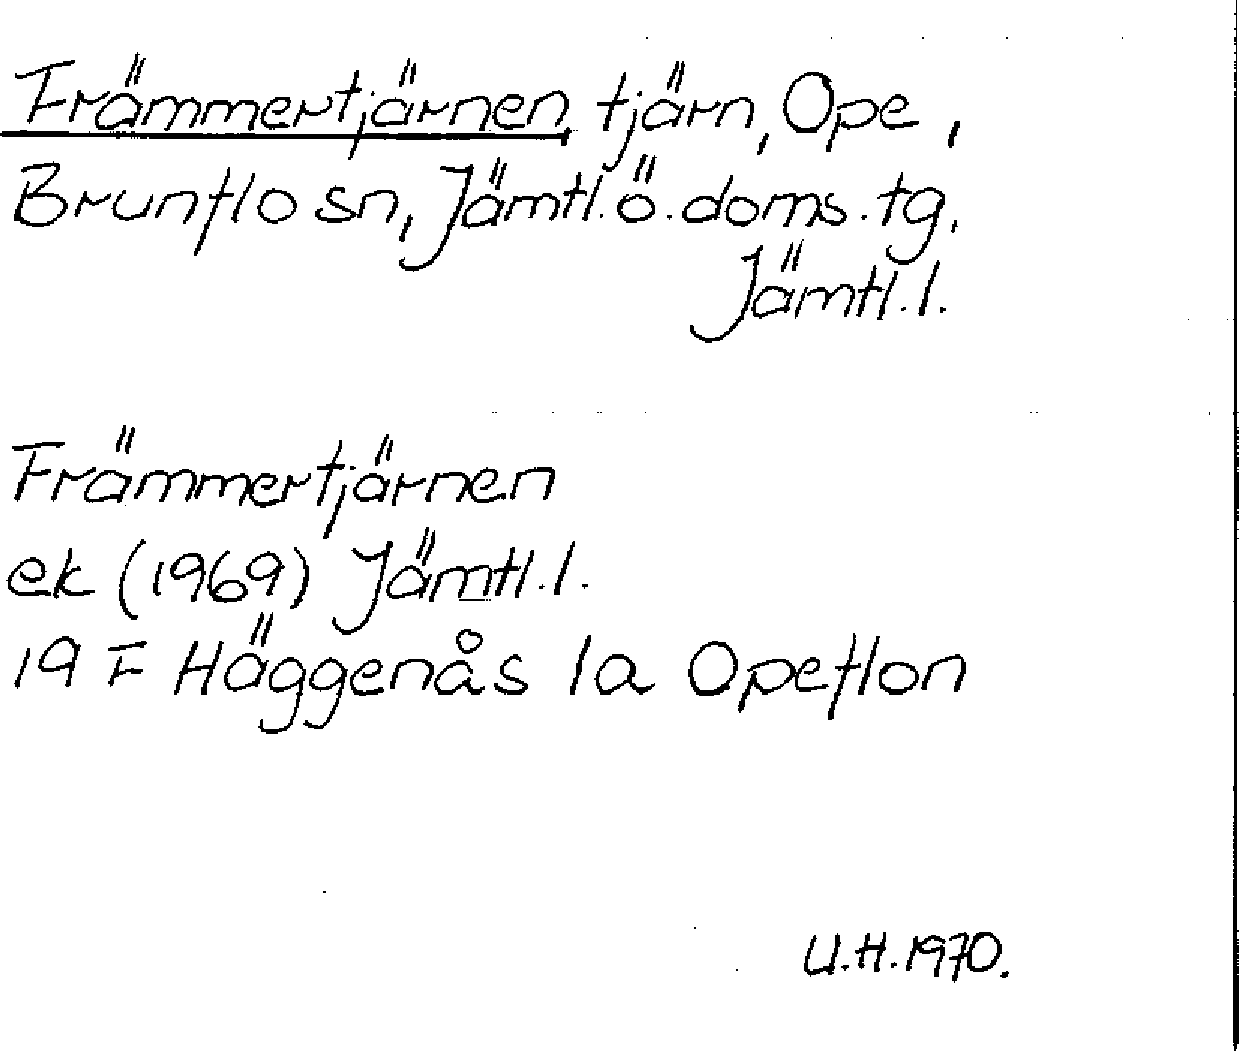 Främmertjärnen, tjärn, Ope,
Brunflo sn, Jämtl. ö. doms. tg,
Jämtl. l.
Främmertjärnen
ek (1969) Jämtl. l.
19 F Häggenås 1a Opeflon
U.H. 1970.